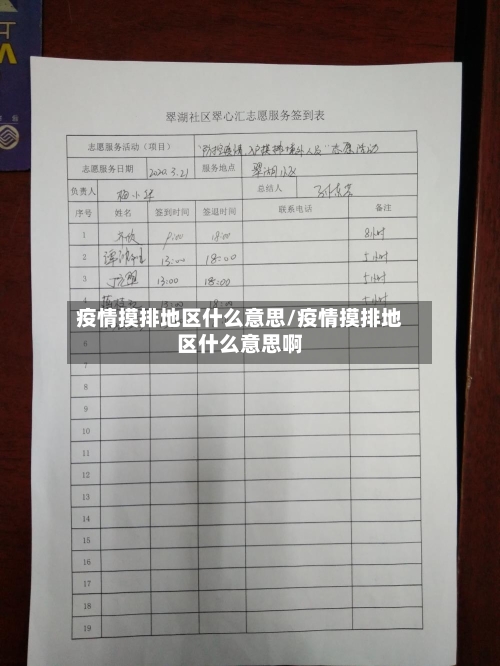 翠湖社区翠心汇志愿服务签到表
志愿服务活动（项目） "防控疫情，入户摸排境外人员"志愿活动
志愿服务日期 2020.3.21 服务地点 翠湖小区
负责人 梅小华 总结人
序号 姓名 签到时间 签退时间 联系电话 备注
1 9:00 18:00 8小时
2 13:00 18:00 5小时
3 13:00 18:00 5小时
4 13:00 18:00 5小时
疫情摸排地区什么意思/疫情摸排地
区什么意思啊
6
7
8
9
10
11
12
13
14
15
16
17
18
19